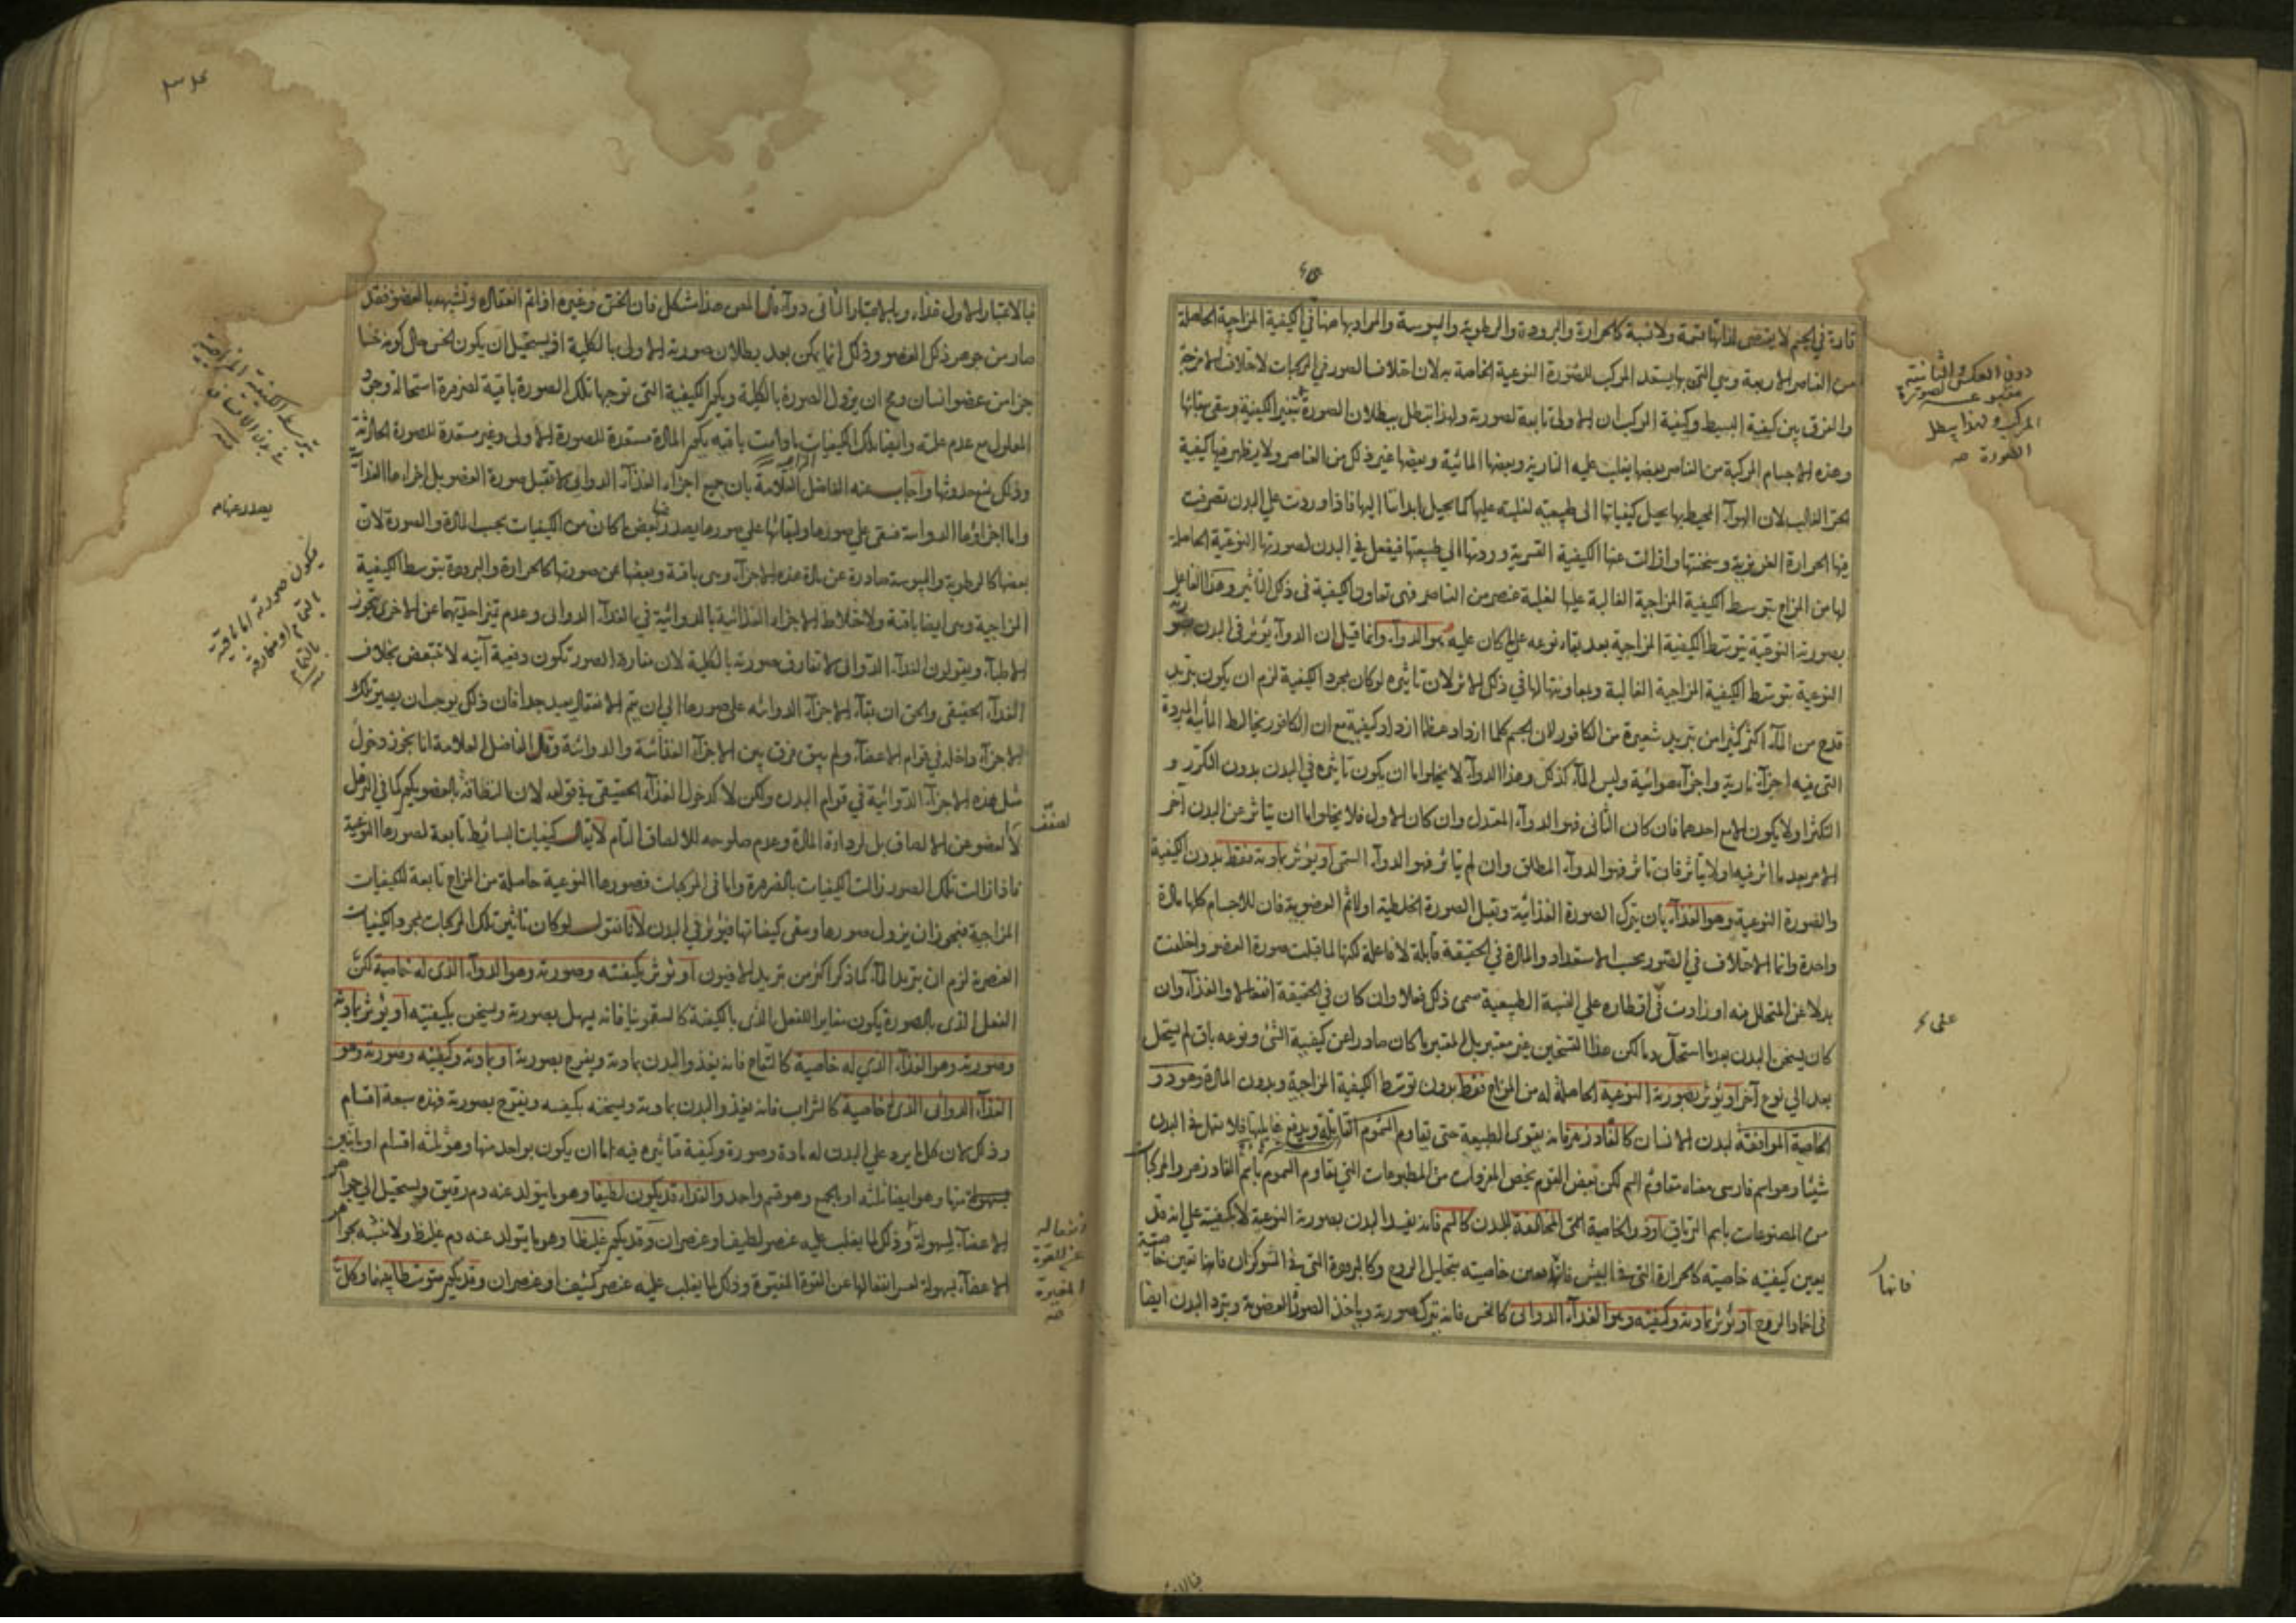 قارة في الجسم لا يقتضى لذاتها قسمة ولا نسبة كالحرارة والبرودة والرطوبة واليبوسة والمراد بها هنا في الكيفية المزاجية الحاصلة
من العناصر الاربعة وهي التي بها يستعد المركب للصورة النوعية الخاصة به لان اختلاف الصور في المركبات لاختلاف الامزجة
والفرق بين كيفية البسيط وكيفية المركب ان الاولى تابعة لصورته ولهذا تبطل ببطلان الصورة بتغير الكيفية ويبقى بقائها
وهذه الاجسام المركبة من العناصر بعضها يغلب عليه النارية وبعضها المائية وبعضها غير ذلك من العناصر ولا يظهر فيها كيفية
الجزء الغالب لان الهواء المحيط بها يحيل كيفياتها الى طبيعته لغلبته عليها كما يحيل ابداننا اليها فاذا وردت على البدن تصرفت
فيها الحرارة الغريزية وسخنتها وازالت عنها الكيفية القسرية وردتها الى طبيعتها فيفعل في البدن لصورتها النوعية الحاصلة
لها من المزاج بتوسط الكيفية المزاجية الغالبة عليها لغلبة عنصر من العناصر فهي تعاون الكيفية في ذلك التأثير وهذا الفاعل
بصورته النوعية بتوسط الكيفية المزاجية بعد بقاء نوعه على ما كان عليه هو الدواء وانما قيل ان الدواء يؤثر في البدن بصورته
النوعية بتوسط الكيفية المزاجية الغالبة وبمعاونتها لها في ذلك الاثر لان تاثيره لو كان بمجرد الكيفية لزم ان يكون تبريد
قدح من الماء اكثر كثيرا من تبريد شعيرة من الكافور لان الجسم كلما ازداد عظما ازداد كيفية مع ان الكافور يخالط المائية المبردة
التى فيه اجزاء نارية واجزاء هوائية وليس الماء كذلك وهذا الدواء لا يخلو اما ان يكون تاثيره في البدن بدون التكرر و
التكثر او لا يكون الا مع احدهما فان كان الثانى فهو الدواء المعتدل وان كان الاول فلا يخلو اما ان يتاثر عن البدن آخر
الامر بعد ما اثر فيه او لا يتاثر فان تاثر فهو الدواء المطلق وان لم يتاثر فهو الدواء السمى او يؤثر بمادته فقط بدون الكيفية
والصورة النوعية وهو الغذاء بان يترك الصورة الغذائية ويقبل الصورة الخلطية اولا ثم العضوية فان للاجسام كلها مادة
واحدة وانما الاختلاف في الصور بحسب الاستعداد والمادة في الحقيقة قابلة لا فاعلة لكنها لما قبلت صورة العضو واخلفت
بدلا عن المتحلل منه او زادت في اقطاره على النسبة الطبيعية سمى ذلك فعلا وان كان في الحقيقة انفعالا والغذاء وان
كان يسخن البدن بعد ما استحال دما لكن هذا التسخين غير معتبر بل المعتبر ما كان صادرا عن كيفية الشئ ونوعه باق لم يستحل
بعد الى نوع آخر او يؤثر بصورته النوعية الحاصلة له من المزاج فقط بدون توسط الكيفية المزاجية وبدون المادة وهو ذو
الخاصية الموافقة لبدن الانسان كالفادزهر فانه يقوى الطبيعة حتى تقاوم السموم القاتلة ويدفع غايلتها فلا تنهك في البدن
شيئا وهو اسم فارسى معناه مقاوم السم لكن بعض القوم يخص المفردات من المطبوعات التي يقاوم السموم باسم الفادزهر والمركبات
من المصنوعات باسم الترياق او ذو الخاصية السمى المخالفة للبدن كالسم فانه يفسد البدن بصورته النوعية لا بكيفيته على انه قد
يعين كيفيته خاصيته كالحرارة التى في البيش فانها تعين خاصيته بتحليل الروح وكالبرودة التى في الشوكران فانها تعين خاصيته
في اخماد الروح او يؤثر بمادته وكيفيته وهو الغذاء الدوائى كالخس فانه يترك صورته وياخذ الصورة العضوية ويبرد البدن ايضا
دون العكس والثانية
متبوعة لصورة
المركب ولهذا يبطل
الصورة صح
فانها
فبالاعتبار الاول غذاء وبالاعتبار الثانى دواء قال المص هذا مشكل فان الخس وغيره اذا تم انفعاله وتشبهه بالعضو فقد
صار من جوهر ذلك العضو وذلك انما يمكن بعد بطلان صورته الاولى بالكلية اذ يستحيل ان يكون الخس حال كونه خسا
جزء من عضو انسان ومع ان يزول الصورة بالكلية ويكون الكيفية التى توجبها تلك الصورة باقية لضرورة استحالة وجود
المعلول مع عدم علته وايضا تلك الكيفيات ما دامت باقية يكون المادة مستعدة للصورة الاولى وغير مستعدة للصورة الحادثة
وذلك يمنع حدوثها واجاب عنه الفاضل العلامة بان جميع اجزاء الغذاء الدوائى لا تقبل صورة العضو بل اجزاءها الغذائية
واما اجزاؤها الدوائية فتبقى على صورها ولبقائها على صورها يصدر بعض ما كان من الكيفيات بحسب المادة والصورة لان
بعضها كالرطوبة واليبوسة صادرة عن مادة هذه الاجزاء وهي باقية وبعضها عن صورتها كالحرارة والبرودة بتوسط الكيفية
المزاجية وهي ايضا باقية ولاختلاط الاجزاء الغذائية بالدوائية في الغذاء الدوائى وعدم تميز احديهما عن الاخرى تجوز
الاطباء ويقولون الغذاء الدوائى لا تفارق صورته بالكلية لان مفارقة الصور تكون دفعية آنية لا تتبعض بخلاف
الغذاء الحقيقى والحق ان بقاء الاجزاء الدوائية على صورها الى ان يتم الانفعال بعيد جدا فان ذلك يوجب ان يصير تلك
الاجزاء داخلة في قوام الاعضاء ولم يبق فرق بين الاجزاء الغذائية والدوائية وقال الفاضل العلامة انا نجوز دخول
مثل هذه الاجزاء الدوائية في قوام البدن ولكن لا كدخول الغذاء الحقيقى في قوامه لان التصاقه بالعضو يكون كما في الترهل
لا لضعف عن الالصاق بل لرداءة المادة وعدم صلوحه للالصاق التام لا يقال كيفيات البسائط تابعة لصورها النوعية
فاذا زالت تلك الصور زالت الكيفيات بالضرورة واما في المركبات فصورها النوعية حاصلة من المزاج تابعة للكيفيات
المزاجية فيجوز ان يزول صورها ويبقى كيفياتها فيؤثر في البدن لانا نقول لو كان تاثير تلك المركبات بمجرد الكيفيات
العنصرية لزم ان تبريد الماء كما ذكر اكثر من تبريد الافيون او يؤثر بكيفيته وصورته وهو الدواء الذى له خاصية لكن
الفعل الذى بالصورة يكون مغايرا للفعل الذى بالكيفية كالسقمونيا فانه يسهل بصورته ويسخن بكيفيته او يؤثر بمادته
وصورته وهو الغذاء الذي له خاصية كالتفاح فانه يغذو البدن بمادته ويفرح بصورته او بمادته وكيفيته وصورته وهو
الغذاء الدوائى الذى له خاصية كالشراب فانه يغذو البدن بمادته ويسخنه بكيفيته ويفرح بصورته فهذه سبعة اقسام
وذلك لان كل ما يرد على البدن له مادة وصورة وكيفية فتاثيره فيه اما ان يكون بواحد منها وهو ثلثة اقسام او باثنين
منها وهو ايضا ثلثة او بالجميع وهو قسم واحد والغذاء قد يكون لطيفا وهو ما يتولد عنه دم رقيق ويستحيل الى جواهر
الاعضاء بسهولة وذلك لما يغلب عليه عنصر لطيف او عنصران وقد يكون غليظا وهو ما يتولد عنه دم غليظ ولا تشبه بجواهر
الاعضاء بسهولة لعسر انفعالها عن القوة المغيرة وذلك لما يغلب عليه عنصر كثيف او عنصران وقد يكون متوسطا بينهما وكل
بتوسط الكيفية المزاجية
في بدن الانسان
يصدر عنها
فيكون صورته اما باقية
بالتمام او مفارقة
بالتمام
لضعف
انفعاله
عن القوة
المغيرة